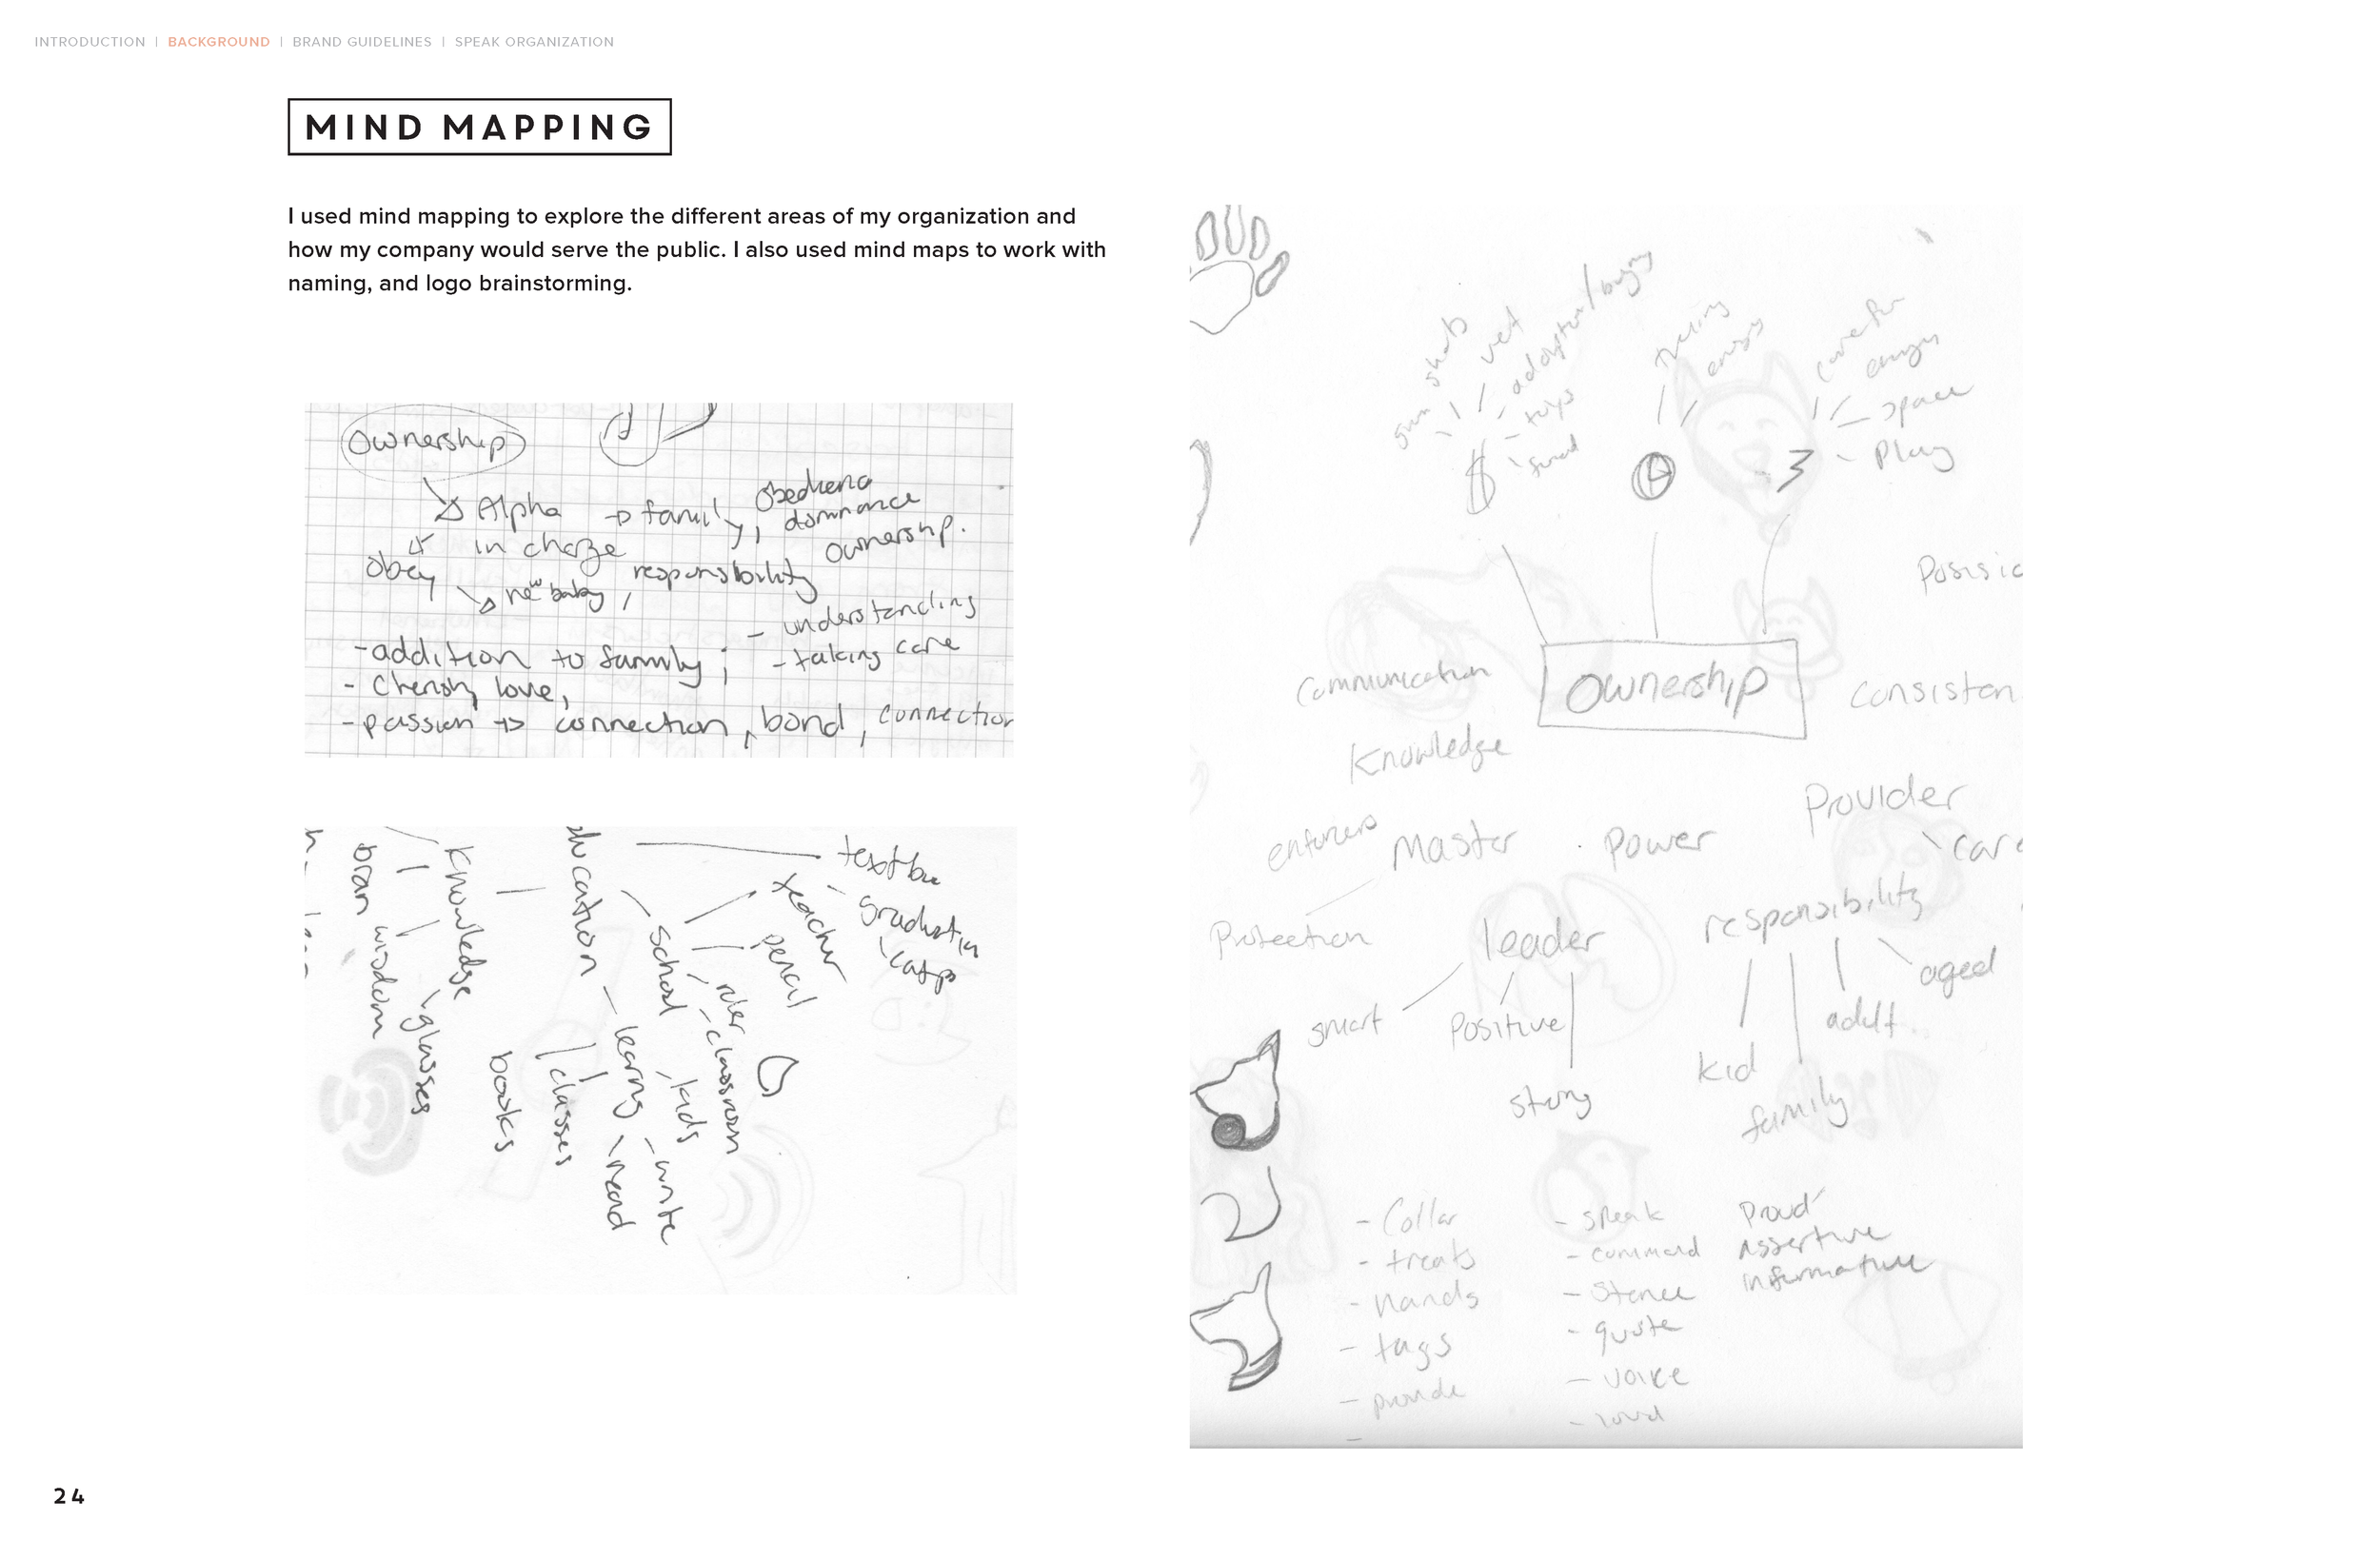 INTRODUCTION | BACKGROUND | BRAND GUIDELINES | SPEAK ORGANIZATION
MIND MAPPING
I used mind mapping to explore the different areas of my organization and
how my company would serve the public. I also used mind maps to work with
naming, and logo brainstorming.
Ownership
Alpha → family, obedience
dominance
ownership.
in charge
obey
new baby, responsibility
- understanding
- taking care
- addition to family;
- cherish, love,
- passion → connection, bond, connection
textbo
graduation
teacher
pencil
ruler
classroom
school
kids
write
learing
read
classes
books
knowledge
glasses
wisdom
shots
vet
adoption / buying
toys
food
$
energy
care for
energy
space
Play
Ownership
Communication
Knowledge
Consisten
Provider
care
enforcers
Master
Power
Protection
leader
responsibility
smart
Positive
strong
kid
family
adult
aged
- Collar
- treats
- hands
- tags
- provide
-
- speak
- command
- Stance
- quote
- voice
- loud
Proud
Assertive
informative
24